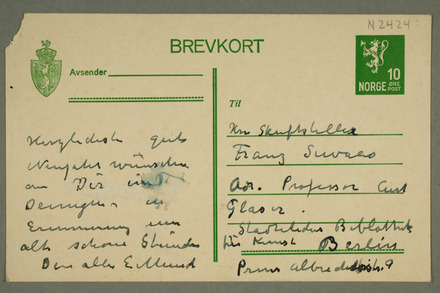 N 2424
BREVKORT
Avsender
10
NORGE ØRE POST
Til
Herzlichste gute
Neujahrswünschen
an Dir und
Deinigen in
Erinnerung von
alte schöne Stunden
Dein alter Ed Munch
Hr Skriftsteller
Franz Servaes
Adr. Professor Curt
Glaser.
Staatliches Bibliothek
für Kunst Berlin
Prinz Albrechtstr. 9